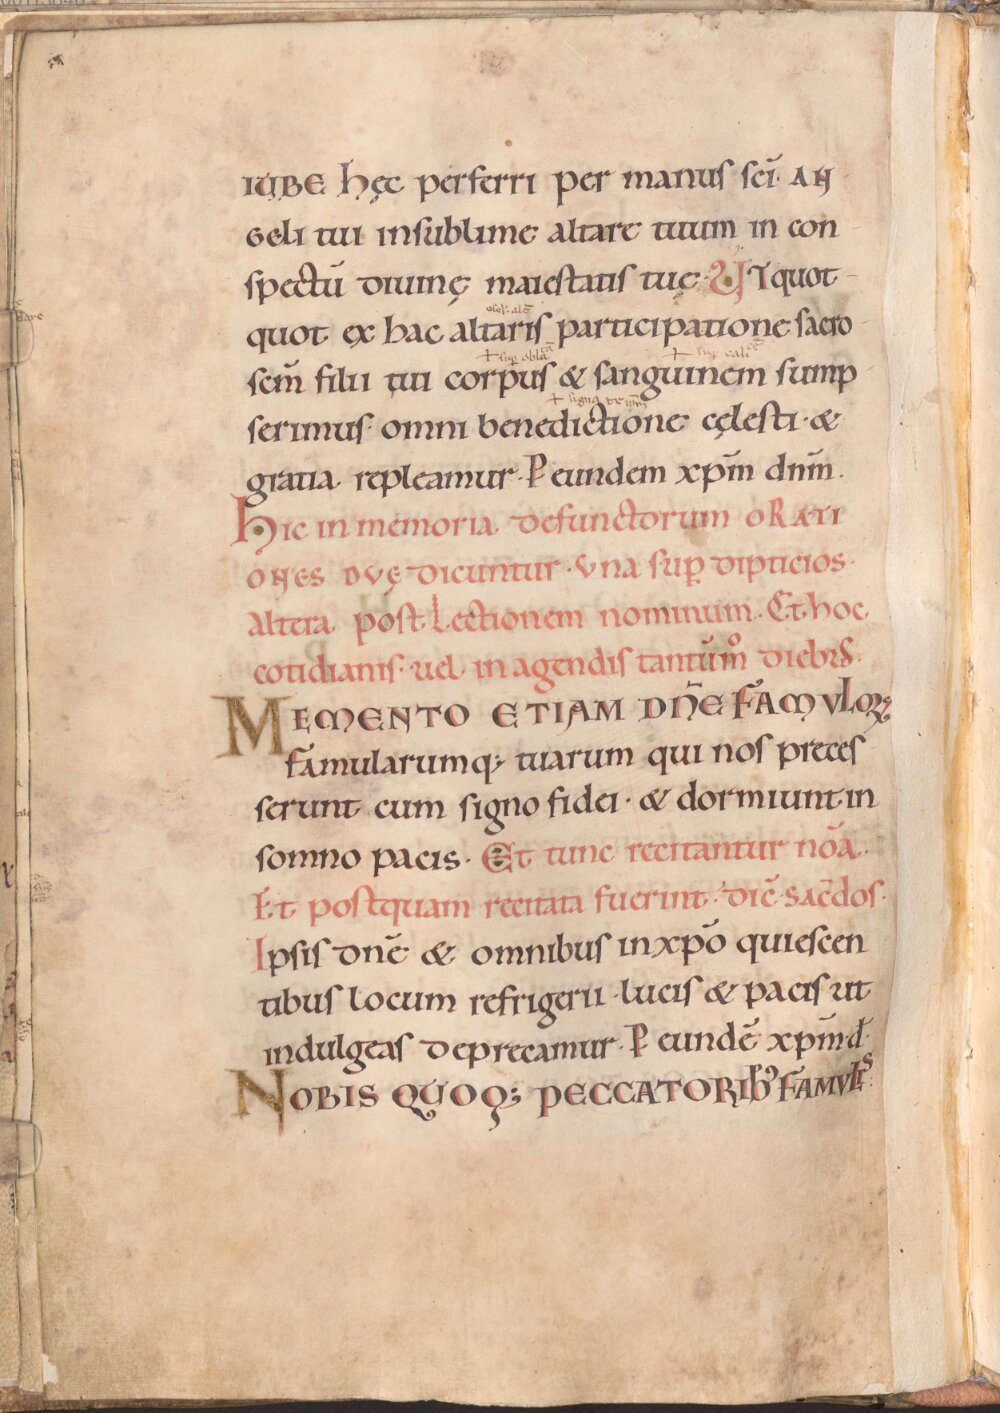 IUBE hęc perferri per manus scī AN
geli tui insublime altare tuum in con
spectū diuinę maiestatis tuę· UT quot
quot ex hac altaris participatione sacro
scm̄ filii tui corpus & sanguinem sump
serimus· omni benedictione cęlesti· &
gratia repleamur· P eundem xp̄m dnm̄.
Hic in memoria defunctorum oRati
ones dvę dicuntur· Vna sup̱ diptícios·
Altera post Lectionem nominum. Et hoc
cotidianis· uel in agendis tantūmo diebus·
MEMENTO ETIAM DN̄E FAMVLOꝜ
famularumq; tuarum qui nos preces
serunt cum signo fidei· & dormiunt in
somno pacis· Et tunc recitantur nōa.
Et postquam recitata fuerint· dic̄ sac̄dos·
Ipsis dnē & omnibus in xp̄o quiescen
tibus locum refrigerii lucis & pacis ut
indulgeas deprecamur· P eundē xp̄m d·
NOBIS QUOQ; PECCATORIB FAMVLIS